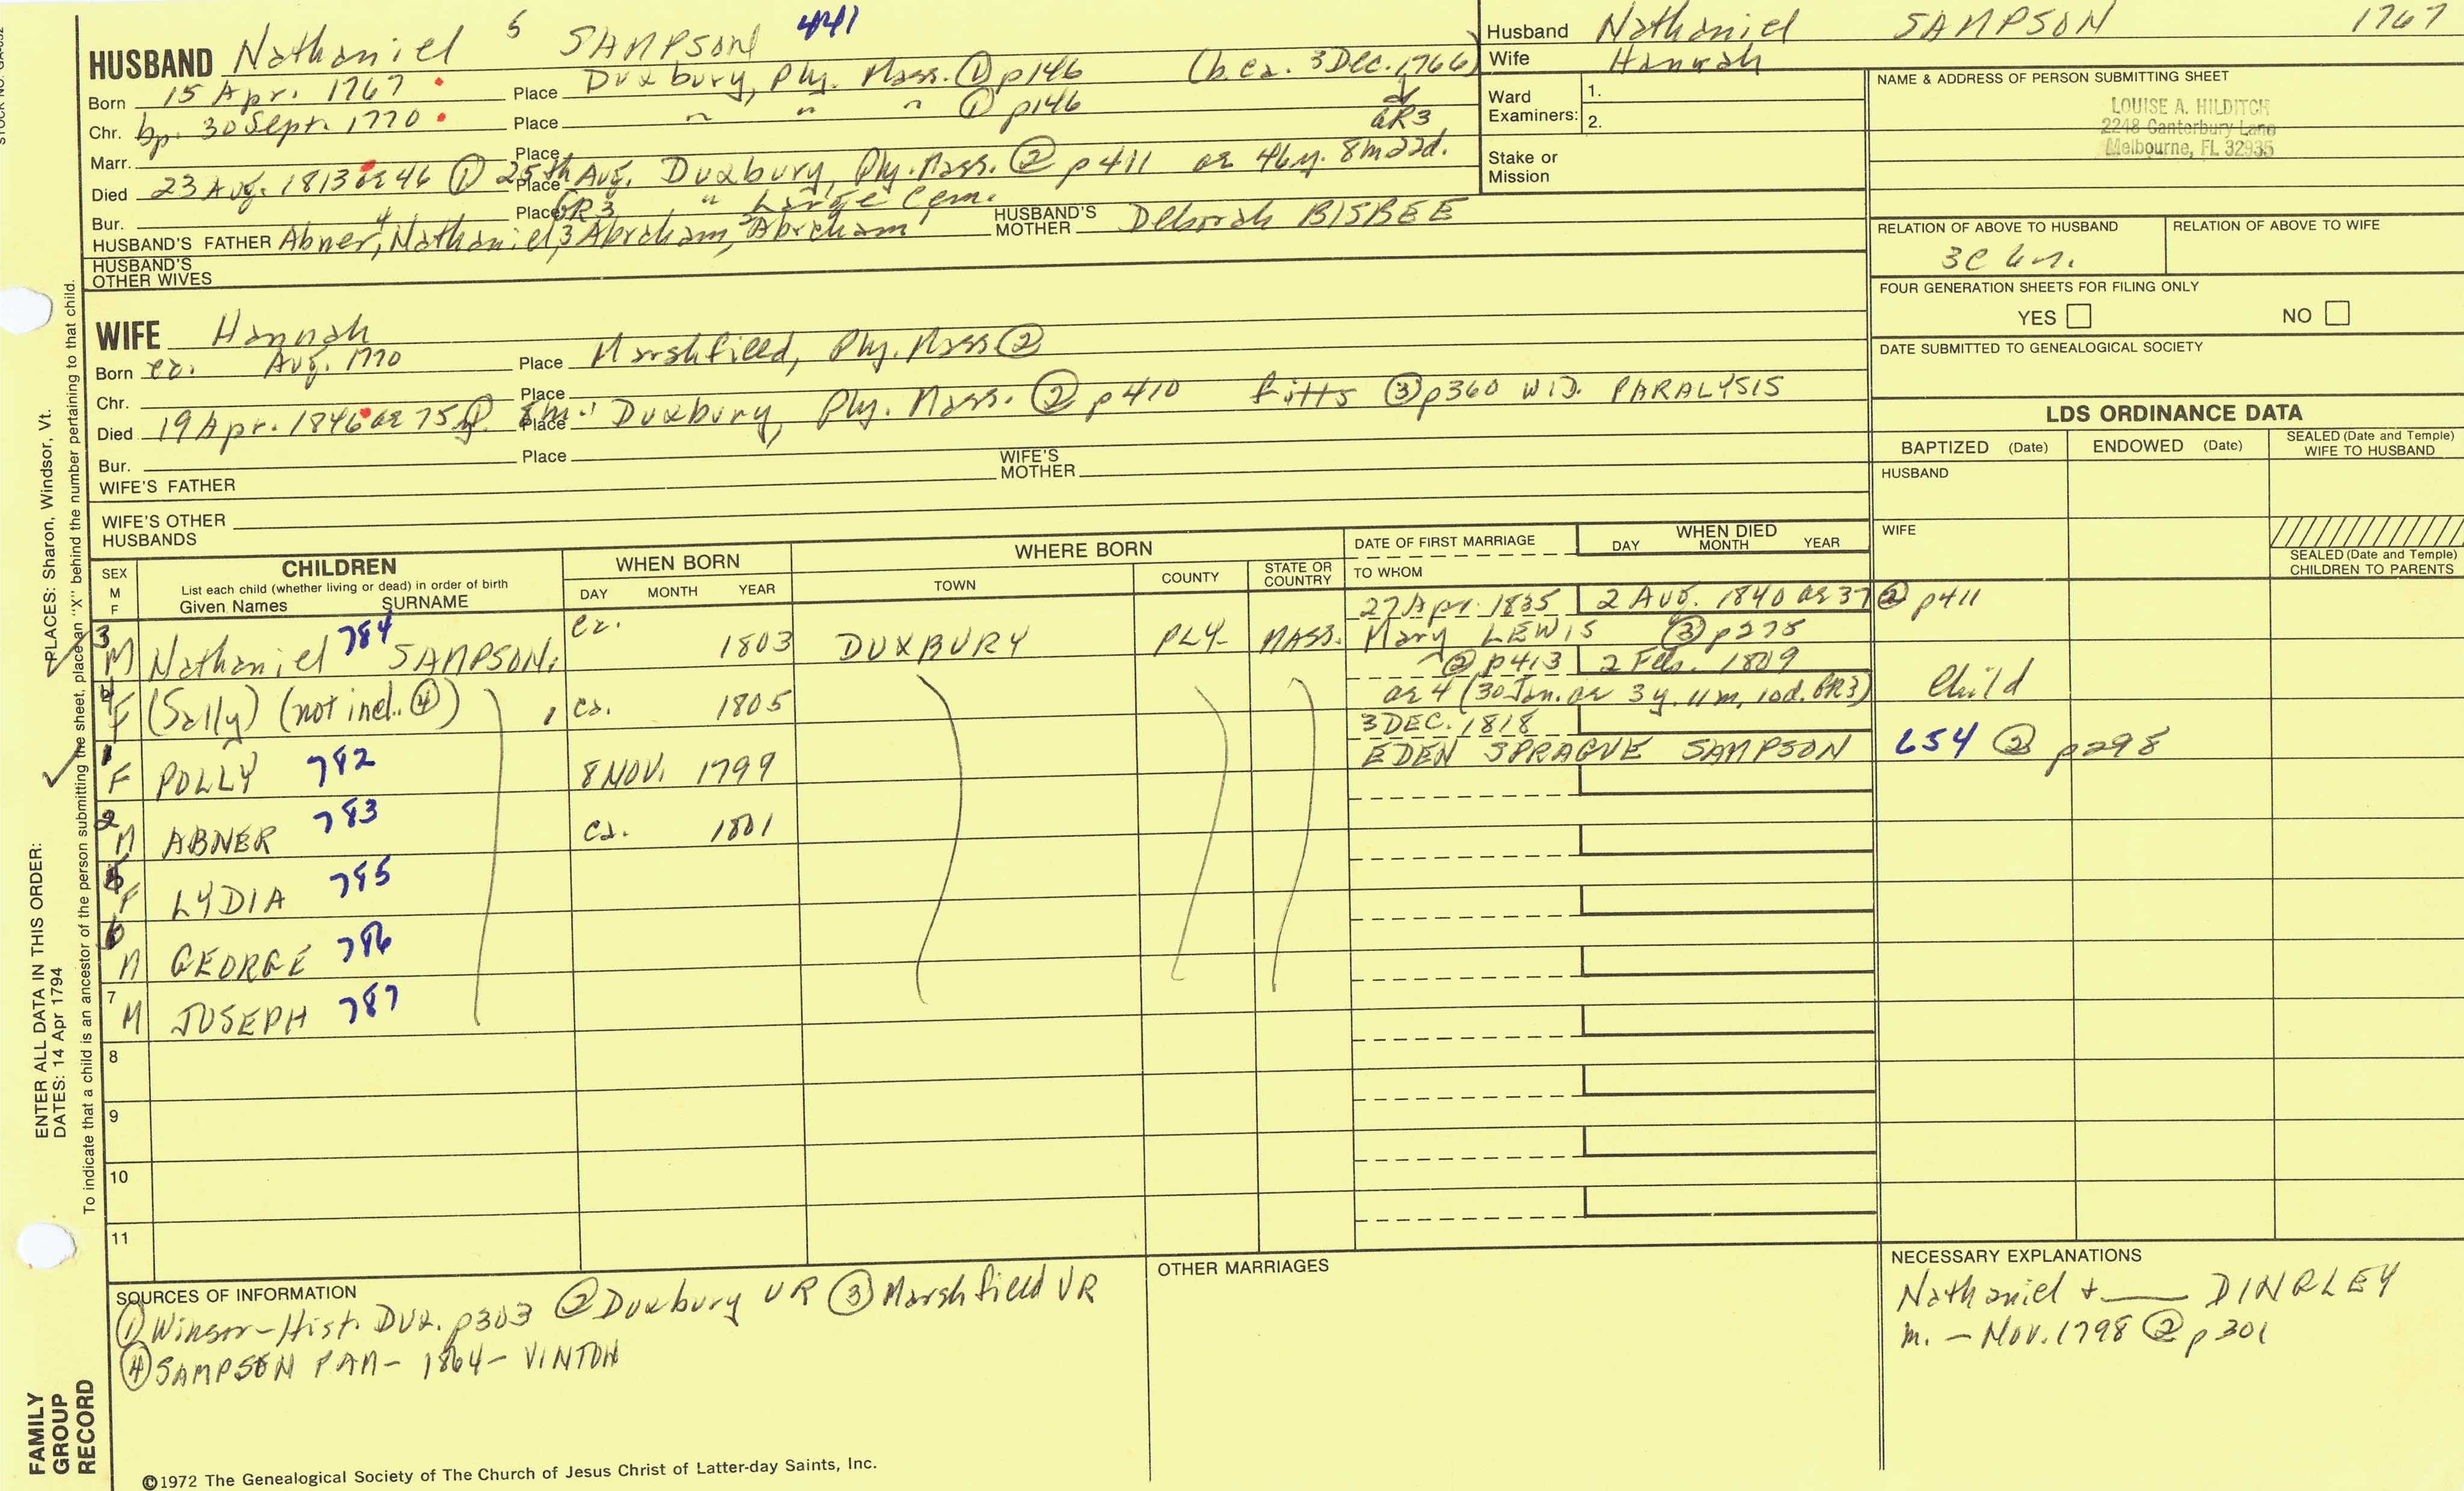 HUSBAND Nathaniel 5 SAMPSON 441
Born 15 Apr. 1767 Place Duxbury, Ply. Mass. ① p146 (b. ca. 3 Dec. 1766)
Chr. bp. 30 Sept. 1770 Place " " " ① p146 GR3
Marr. Place
Died 23 Aug. 1813 ae 46 ① 25th Aug. Place Duxbury, Ply. Mass. ② p411 ae 46y. 8m 22d.
Bur. Place GR3 " Large Cem.
HUSBAND'S FATHER Abner, 4 Nathaniel, 3 Abraham, 2 Abraham 1 HUSBAND'S MOTHER Deborah BISBEE
HUSBAND'S OTHER WIVES
Husband Nathaniel SAMPSON 1767
Wife Hannah
Ward Examiners: 1.
2.
Stake or Mission
NAME & ADDRESS OF PERSON SUBMITTING SHEET
LOUISE A. HILDITCH
2248 Canterbury Lane
Melbourne, FL 32935
RELATION OF ABOVE TO HUSBAND RELATION OF ABOVE TO WIFE
3C
FOUR GENERATION SHEETS FOR FILING ONLY
YES NO
DATE SUBMITTED TO GENEALOGICAL SOCIETY
WIFE Hannah
Born ca. Aug. 1770 Place Marshfield, Ply. Mass ②
Chr. Place
Died 19 Apr. 1846 ae 75y. 8m. Place Duxbury, Ply. Mass. ② p410 fitts ③ p360 WID. PARALYSIS
Bur. Place
WIFE'S FATHER WIFE'S MOTHER
WIFE'S OTHER HUSBANDS
LDS ORDINANCE DATA
BAPTIZED (Date) ENDOWED (Date) SEALED (Date and Temple) WIFE TO HUSBAND
HUSBAND
WIFE
SEALED (Date and Temple) CHILDREN TO PARENTS
SEX M F CHILDREN List each child (whether living or dead) in order of birth Given Names SURNAME
WHEN BORN DAY MONTH YEAR
WHERE BORN TOWN COUNTY STATE OR COUNTRY
DATE OF FIRST MARRIAGE TO WHOM
WHEN DIED DAY MONTH YEAR
27 Apr. 1835 2 Aug. 1840 ae 37 ② p411
3 M Nathaniel 784 SAMPSON ca. 1803 DUXBURY PLY. MASS. Mary LEWIS ③ p278
② p413 2 Feb. 1809
4 F (Sally) (not incl. ④) ca. 1805 ae 4 (30 Jan. ae 3y. 11m. 10d. GR3) Child
3 DEC. 1818
1 F POLLY 782 8 NOV. 1799 EDEN SPRAGUE SAMPSON 654 ② p298
2 M ABNER 783 ca. 1801
5 F LYDIA 785
6 M GEORGE 786
7 M JOSEPH 787
8
9
10
11
SOURCES OF INFORMATION
① Winsor-Hist. DUX. p303 ② Duxbury VR ③ Marshfield VR
④ SAMPSON FAM- 1864- VINTON
OTHER MARRIAGES
NECESSARY EXPLANATIONS
Nathaniel + ___ DINGLEY
m. - Nov. 1798 ② p301
©1972 The Genealogical Society of The Church of Jesus Christ of Latter-day Saints, Inc.
FAMILY GROUP RECORD
ENTER ALL DATA IN THIS ORDER:
DATES: 14 Apr 1794
PLACES: Sharon, Windsor, Vt.
To indicate that a child is an ancestor of the person submitting the sheet, place an "X" behind the number pertaining to that child.